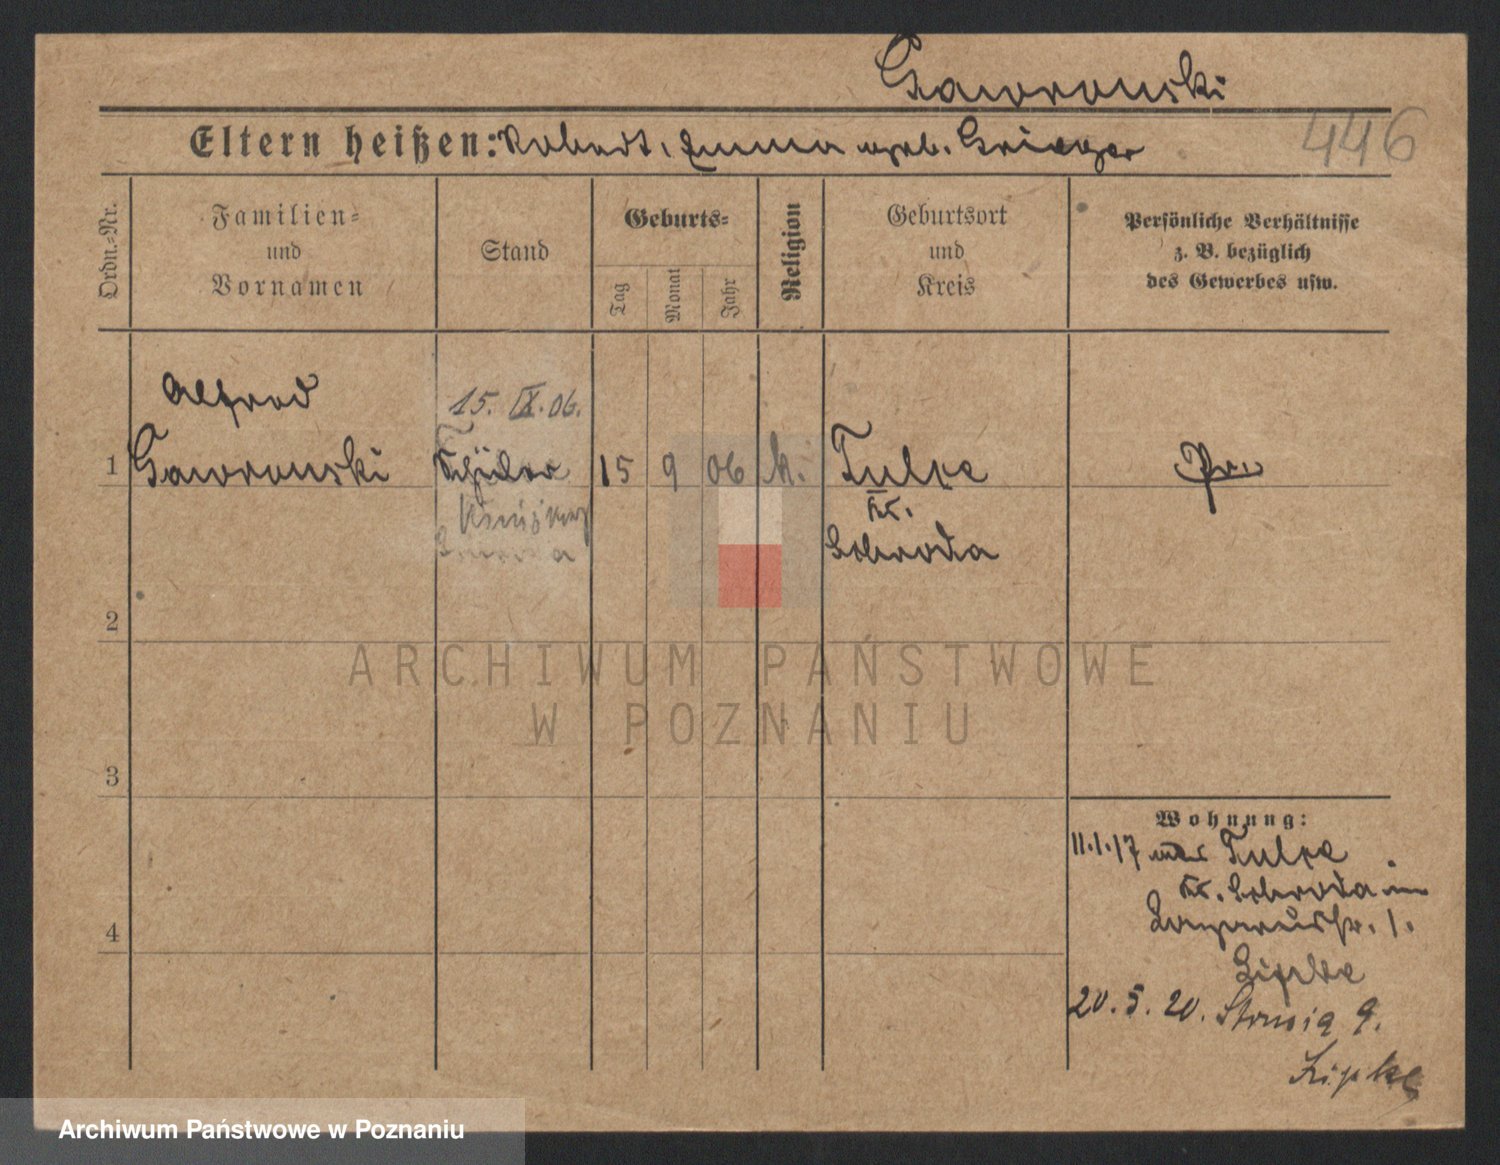 Gaworonski
Eltern heißen: Robert, Emma geb. Krieger
446
Ordn.-Nr.
Familien-
und
Vornamen
Stand
Geburts-
Tag
Monat
Jahr
Religion
Geburtsort
und
Kreis
Persönliche Verhältnisse
z. B. bezüglich
des Gewerbes usw.
Alfred
15. IX. 06.
1 Gaworonski Schüler 15 9 06 k. Tulce Pr.
Kr.
Schroda
2
ARCHIWUM PAŃSTWOWE
W POZNANIU
3
Wohnung:
11.1.17 Tulce
Kr. Schroda
4
Lazarusstr. 1.
Lipke
20. 5. 20. Strusia 9.
Lipke
Archiwum Państwowe w Poznaniu